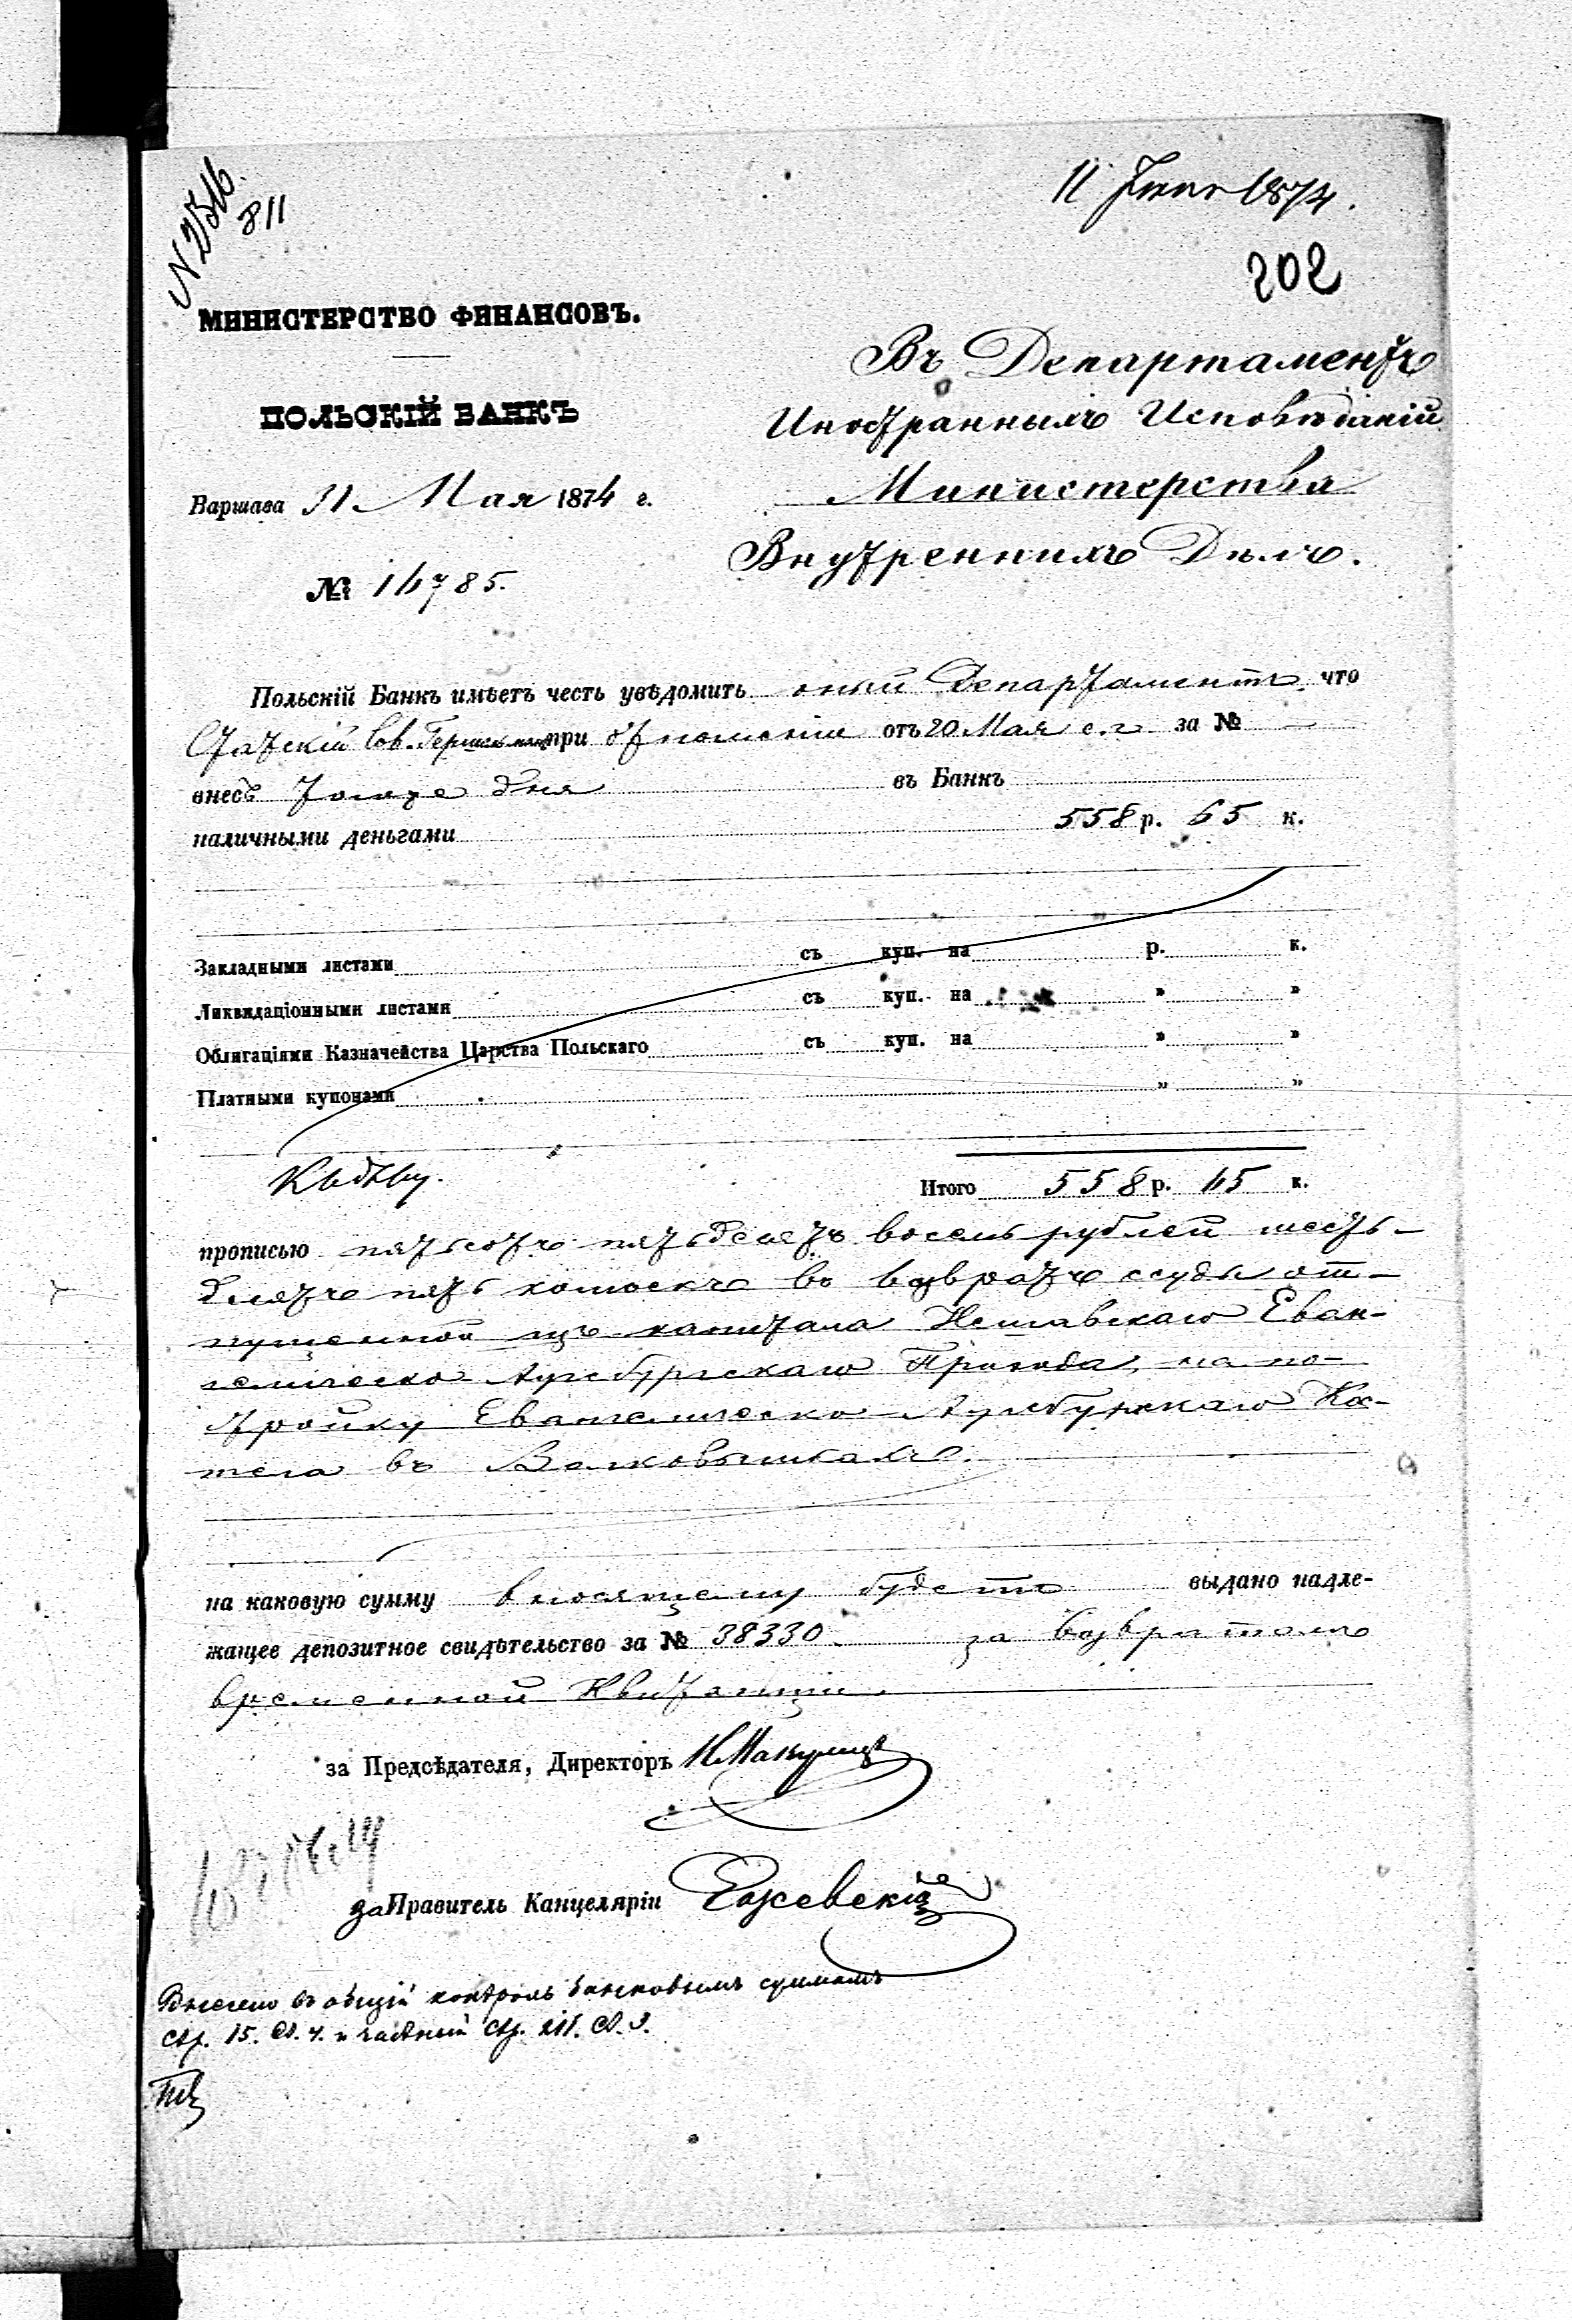 N 2516.
811
11 Іюня 1874.
202
МИНИСТЕРСТВО ФИНАНСОВЪ.
ПОЛЬСКІЙ БАНКЪ
Варшава 31 Мая 1874 г.
№ 16785.
Въ Департаментъ
Иностранныхъ Исповѣданій
Министерства
Внутреннихъ Дѣлъ.
Польскій Банкъ имѣетъ честь увѣдомить оный Департаментъ, что
Статскій Сов. при отношеніи отъ 20 Мая с.г. за № —
внесъ того же дня въ Банкъ
наличными деньгами 558 р. 65 к.
Закладными листами съ куп. на р. к.
Ликвидаціонными листами съ куп. на " "
Облигаціями Казначейства Царства Польскаго съ куп. на " "
Платными купонами " "
Итого 558 р. 65 к.
прописью пятьсотъ пятьдесятъ восемь рублей шесть-
десятъ пять копѣекъ въ возвратъ ссуды от-
пущенной изъ капитала Нешавскаго Еван-
гелическо Аугсбургскаго Прихода, на по-
стройку Евангелическо-Аугсбургскаго Кос-
тела въ Волковышкахъ.
на каковую сумму вносящему будетъ выдано надле-
жащее депозитное свидѣтельство за № 38330. за возвратомъ
временной Квитанціи.
за Предсѣдателя, Директоръ
за Правитель Канцеляріи Ежевскій
Внесено въ общій контроль банковымъ суммамъ
стр. 15. ст. 4. и частный стр. 211. ст. 3.